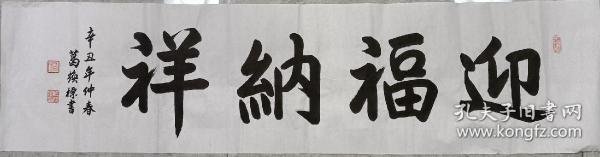 迎福納祥
辛丑年仲春
葛焕標書
孔夫子旧书网
www.kongfz.com